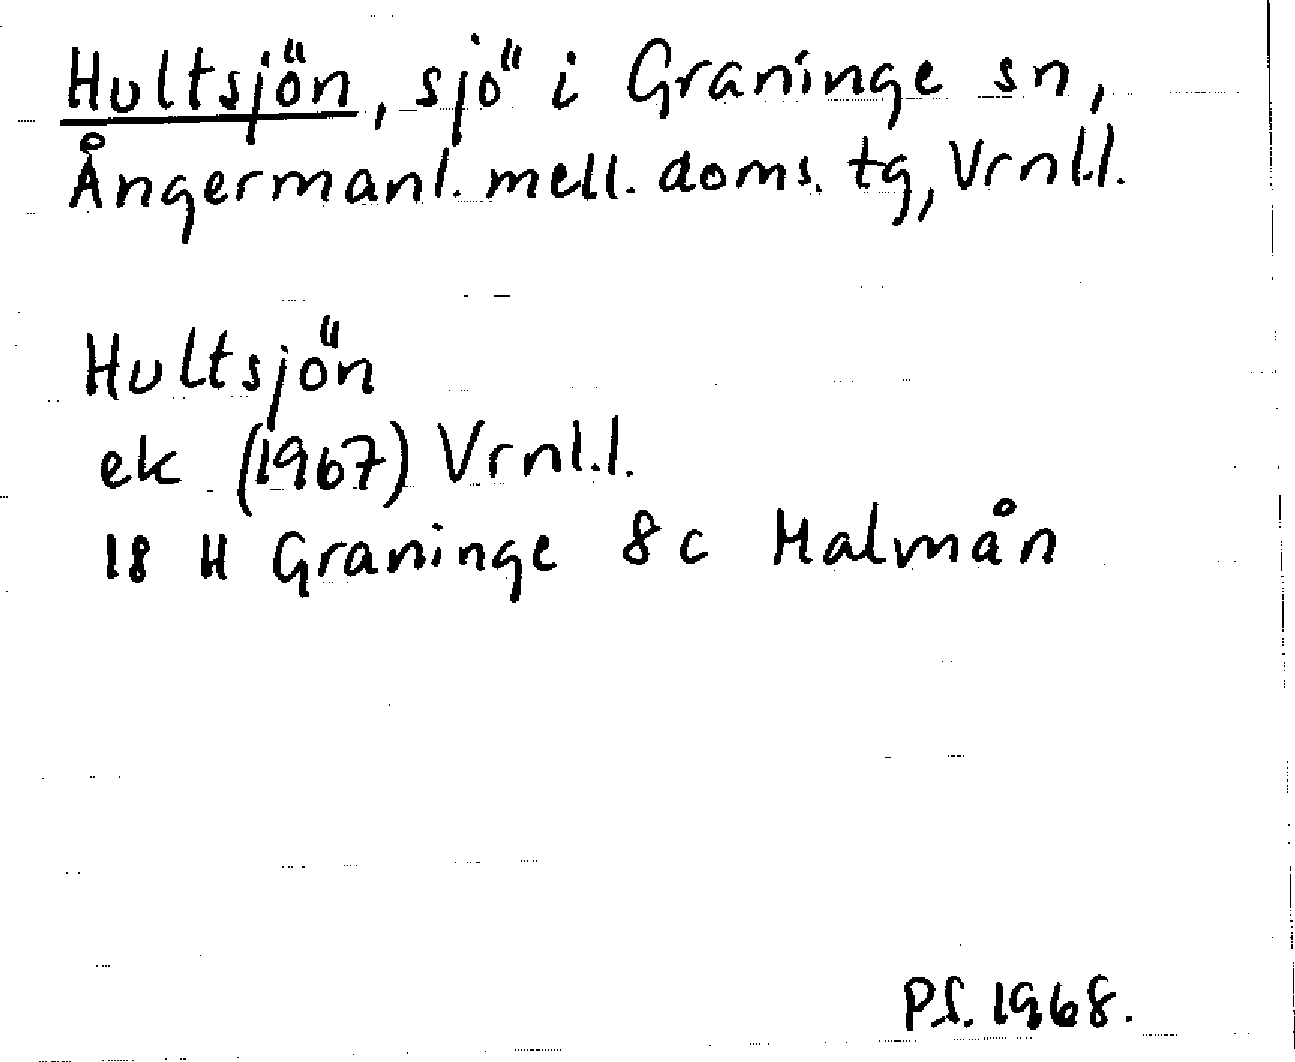 Hultsjön, sjö i Graninge sn,
Ångermanl. mell. doms. tg, Vrnl.l.
Hultsjön
ek (1967) Vrnl.l.
18 H Graninge 8 c Malmån
P.S. 1968.